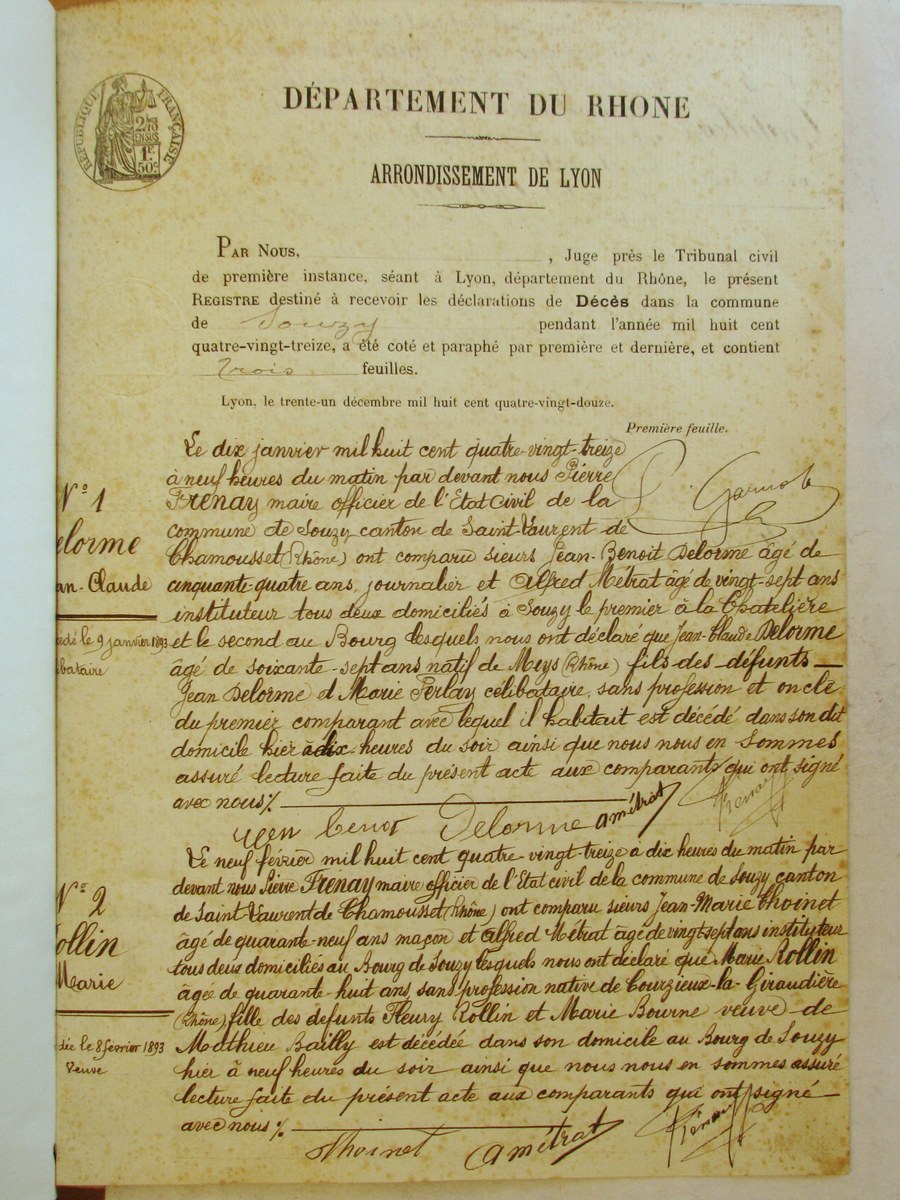 RÉPUBLIQUE FRANÇAISE
2/10 EN SUS
1F 50c
DÉPARTEMENT DU RHONE
ARRONDISSEMENT DE LYON
PAR NOUS, , Juge près le Tribunal civil
de première instance, séant à Lyon, département du Rhône, le présent
REGISTRE destiné à recevoir les déclarations de Décès dans la commune
de Souzy pendant l'année mil huit cent
quatre-vingt-treize, a été coté et paraphé par première et dernière, et contient
trois feuilles.
Lyon, le trente-un décembre mil huit cent quatre-vingt-douze.
Première feuille.
N° 1
elorme
an-Claude
édé le 9 janvier 1893
ibataire
Le dix janvier mil huit cent quatre-vingt-treize
à neuf heures du matin par devant nous Pierre
Frenay maire officier de l'Etat Civil de la
commune de Souzy canton de Saint-Laurent de
Chamousset (Rhône) ont comparu sieurs Jean-Benoit Delorme âgé de
cinquante quatre ans, journalier et Alfred Métrat âgé de vingt-sept ans
instituteur tous deux domiciliés à Souzy le premier à la Chatelière
et le second au Bourg lesquels nous ont déclaré que Jean-Claude Delorme
âgé de soixante-sept ans natif de Meys (Rhône) fils des défunts
Jean Delorme et Marie Ferlay célibataire, sans profession et oncle
du premier comparant avec lequel il habitait est décédé dans son dit
domicile hier à dix heures du soir ainsi que nous nous en sommes
assuré lecture faite du présent acte aux comparants qui ont signé
avec nous %
Delorme aMétrat Frenay
N° 2
ollin
Marie
dée le 8 février 1893
Veuve
Le neuf février mil huit cent quatre-vingt-treize à dix heures du matin par
devant nous Pierre Frenay maire officier de l'Etat civil de la commune de Souzy canton
de Saint-Laurent de Chamousset (Rhône) ont comparu sieurs Jean-Marie Thoinet
âgé de quarante-neuf ans maçon et Alfred Métrat âgé de vingt sept ans instituteur
tous deux domiciliés au Bourg de Souzy lesquels nous ont déclaré que Marie Rollin
âgée de quarante-huit ans, sans profession native de Courzieux-la-Giraudière
(Rhône) fille des défunts Fleury Rollin et Marie Bourne veuve de
Mathieu Bailly est décédée dans son domicile au Bourg de Souzy
hier à neuf heures du soir ainsi que nous nous en sommes assuré
lecture faite du présent acte aux comparants qui ont signé
avec nous %
Thoinet aMétrat Frenay